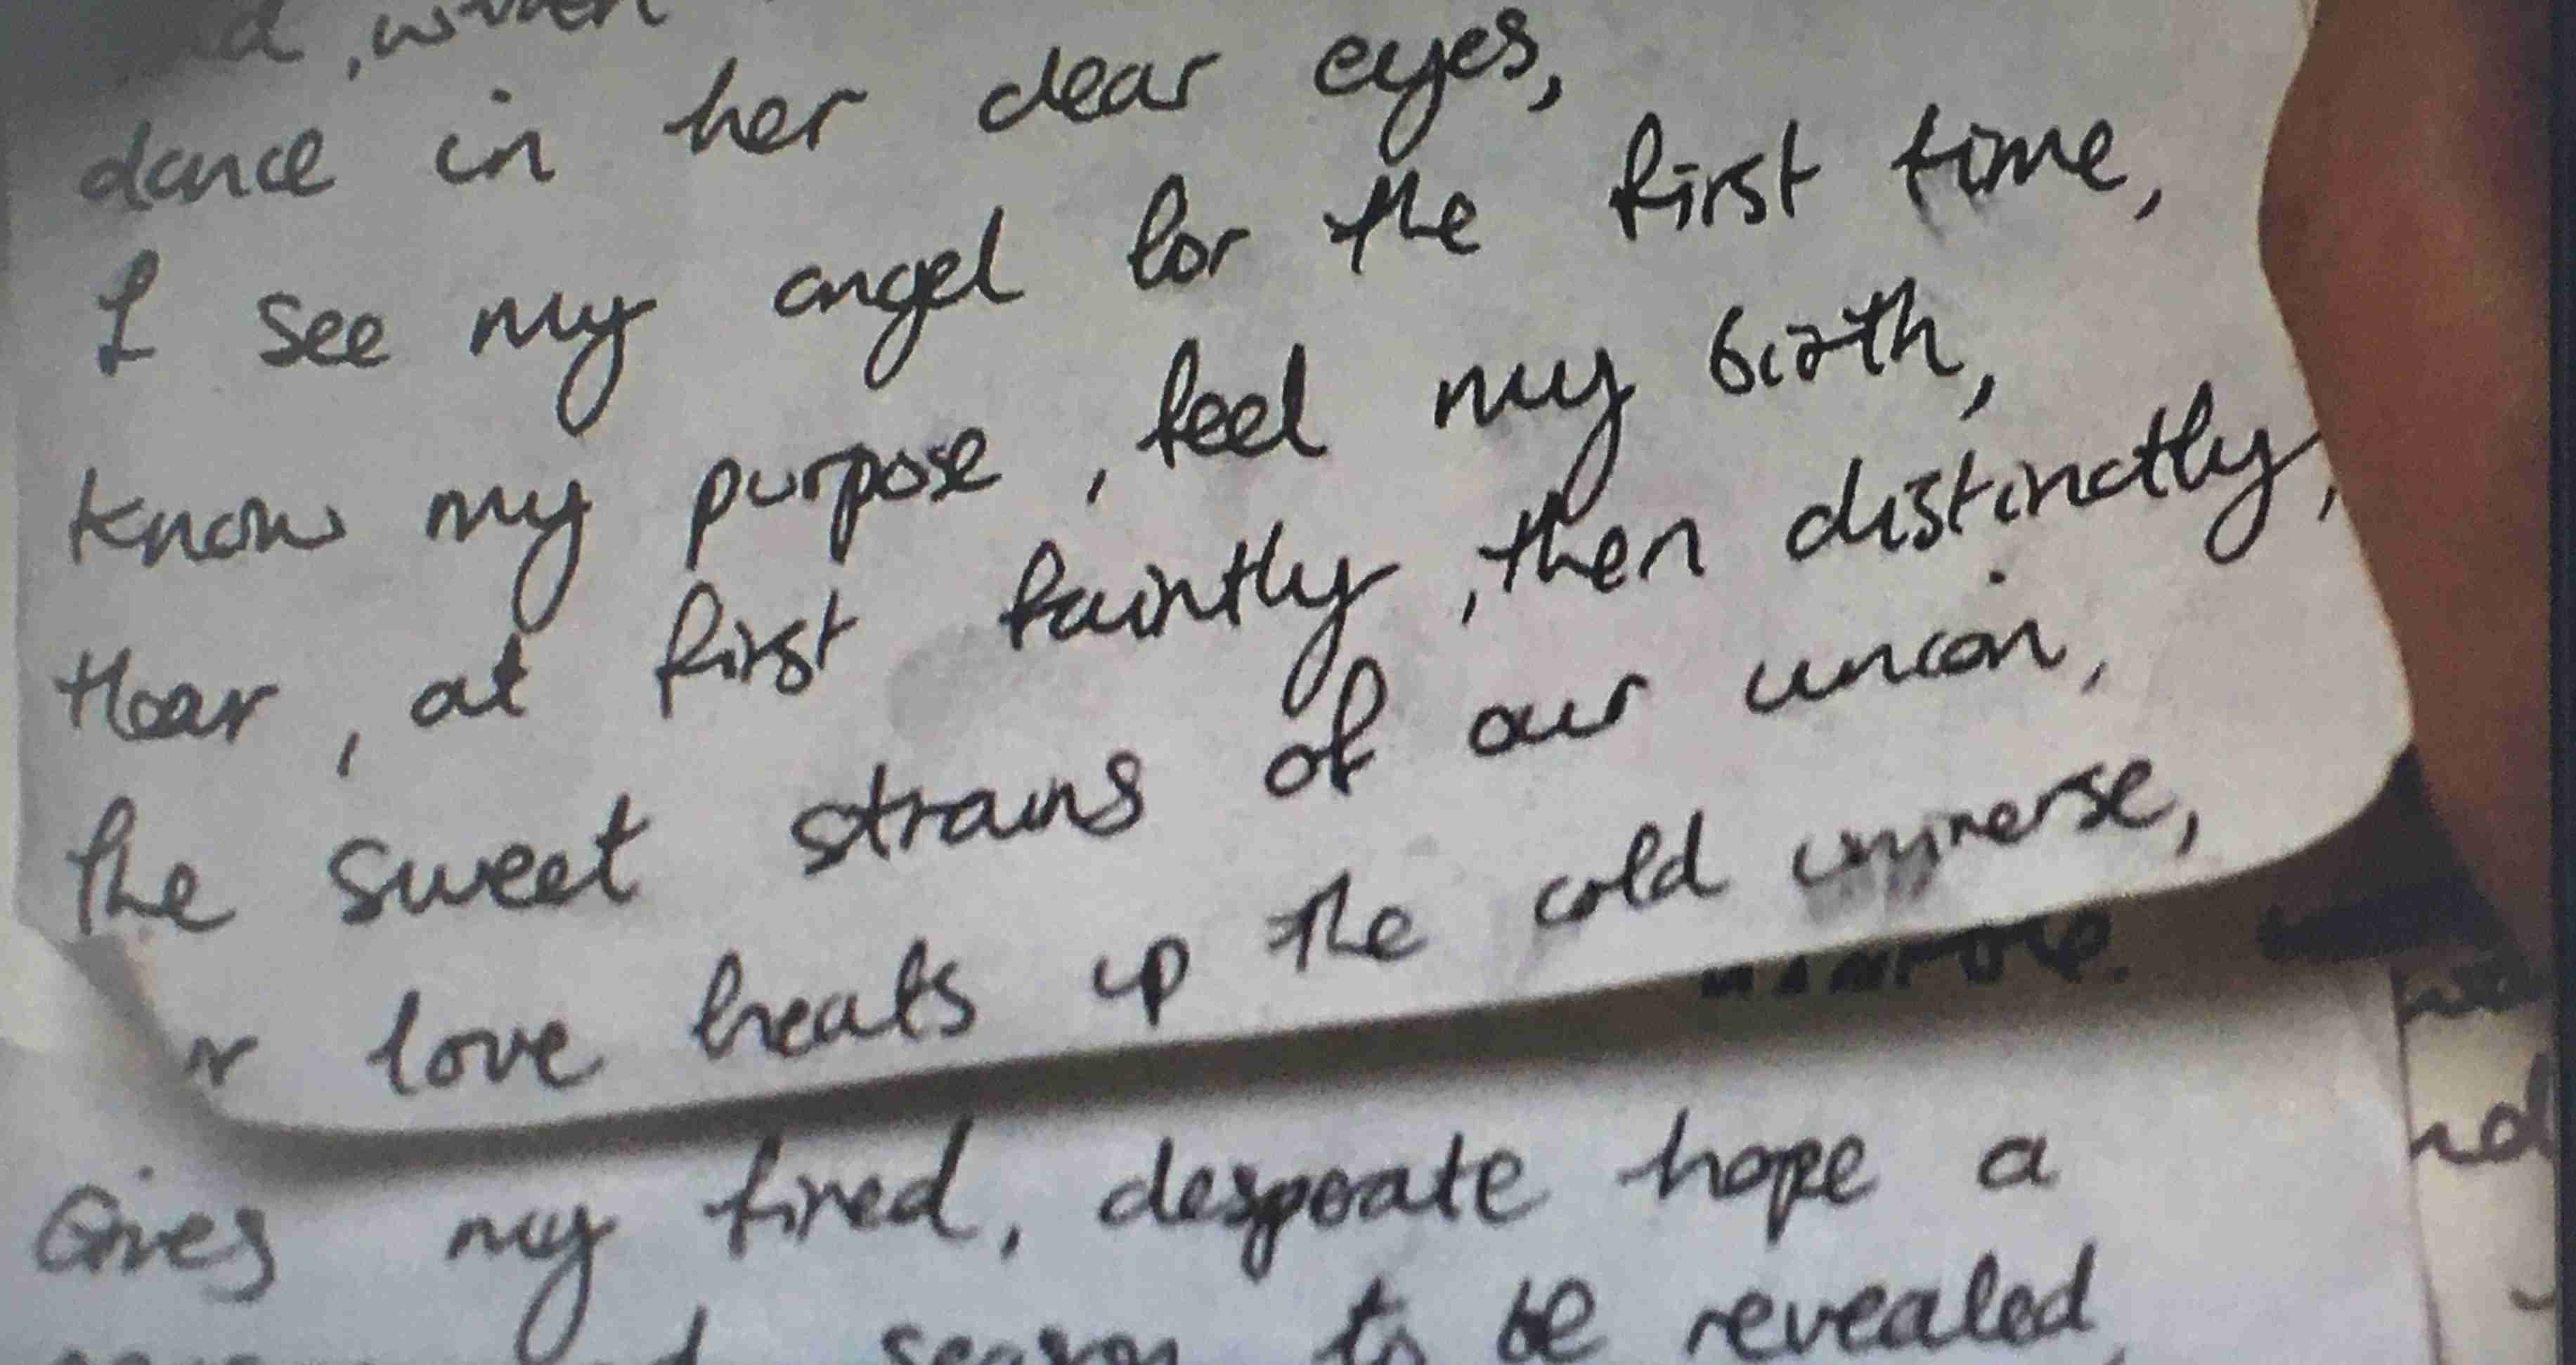 dance in her dear eyes,
I see my angel for the first time,
Know my purpose, feel my birth,
Hear, at first faintly, then distinctly,
The sweet strains of our union,
love heats up the cold universe,
Gives my tired, desperate hope a
season to be revealed